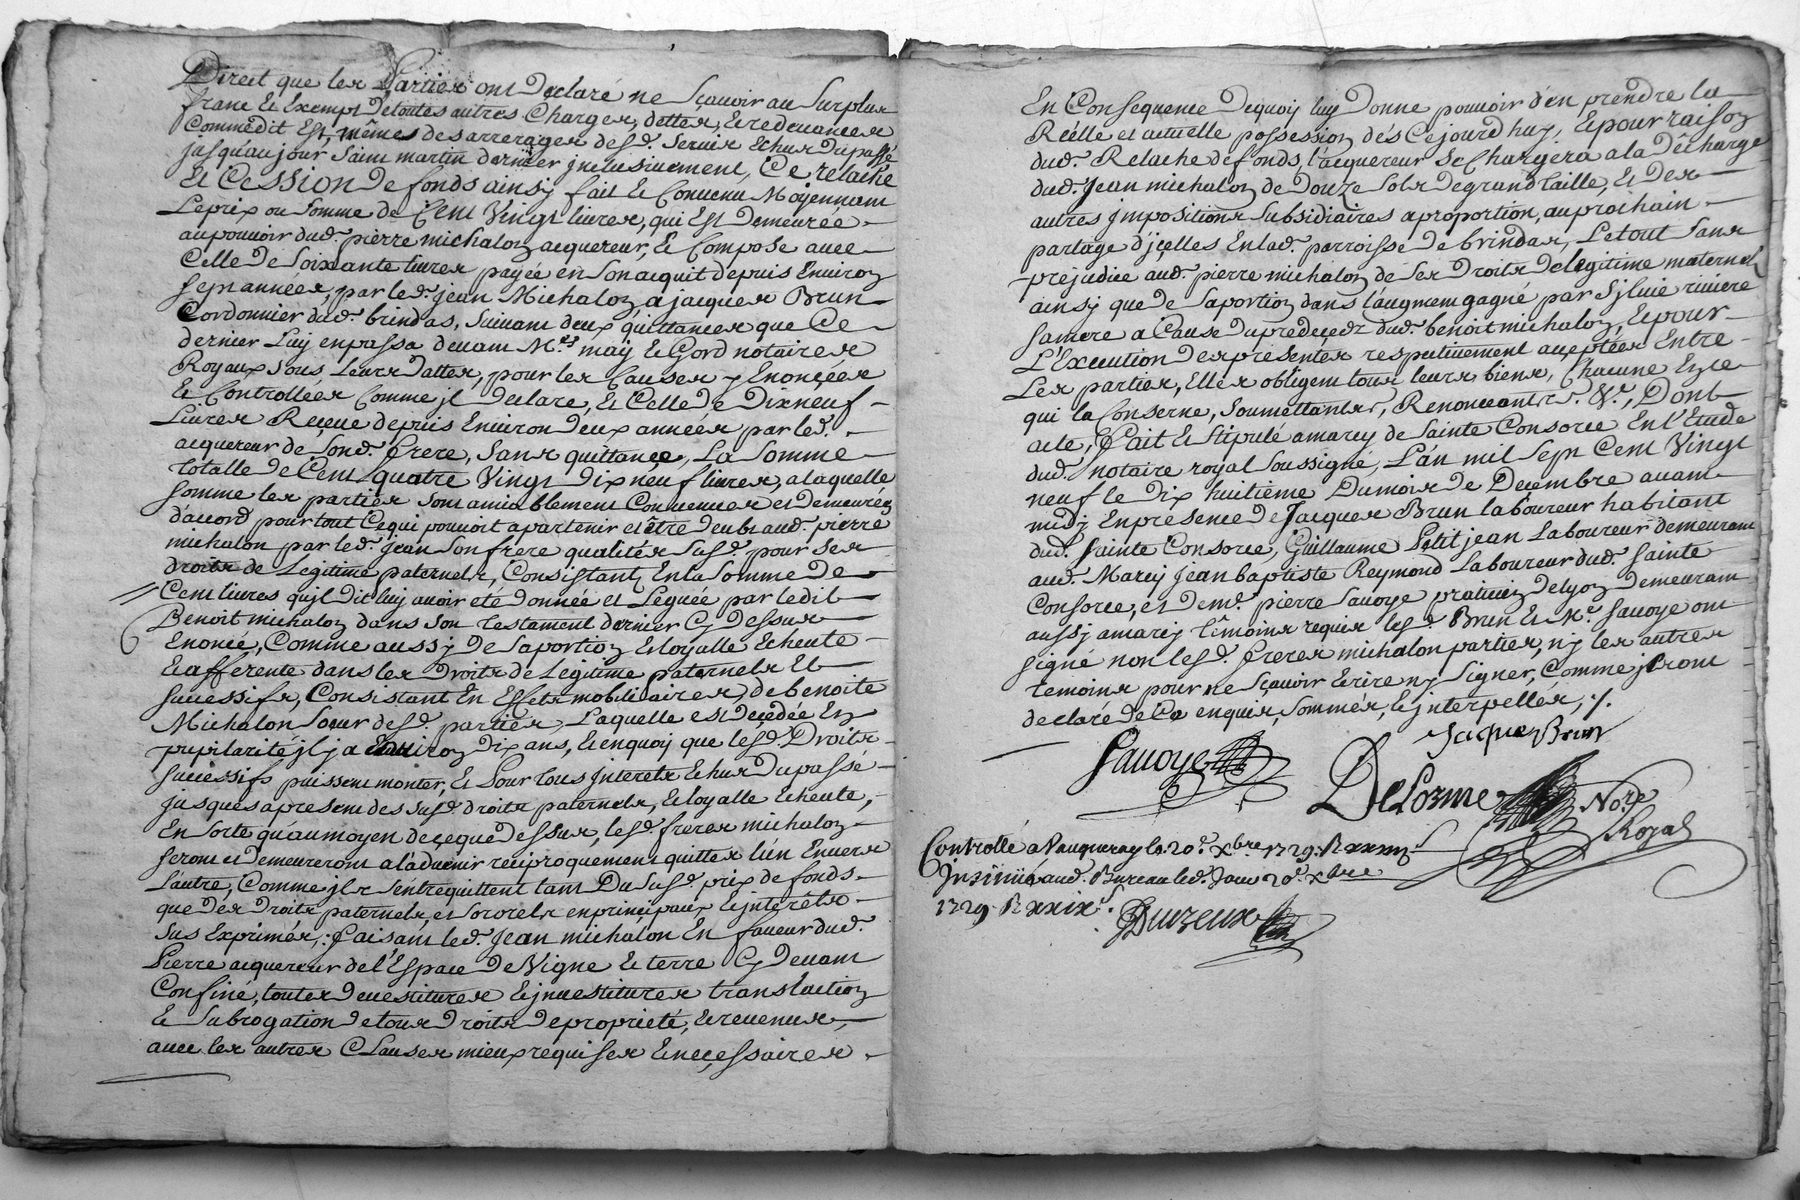 Direct que les Parties ont declaré ne sçavoir au surplus
franc et exempt detoutes autres charges, dettes, et redevances
comme dit est, mêmes des arrerages desd. servis echus du passé
jusqu'au jour saint martin dernier jnclusivement, Ce relache
et Cession de fonds ainsy fait et convenu moyennant
le prix ou somme de Cent vingt livres, qui est demeurée
au pouvoir dud. pierre michalon acquereur, et compose avec
celle de soixante livres payée en son acquit depuis environ
sept années, par led. jean Michalon a jacques Brun
Cordonnier dud. brindas, suivant deux quittances que ce
dernier luy en passa devant Mes. may et Gord notaires
Royaux sous leurs dattes, pour les causes y enonçées
et controllées comme jl declare, et celle de dixneuf
livres reçeue depuis environ deux années par led.
acquereur de sond. frere, sans quittançe, la somme
totalle de cent quatre vingt dix neuf livres, a laquelle
somme les parties sont amiablement convenues et demeurées
d'acord pour tout ce qui pouvoit apartenir et être deub aud. pierre
michalon par led. jean son frere qualités susd. pour ses
droits de legitime paternels, consistant en la somme de
// Cent livres qu'jl dit luy avoir eté donnée et leguée par ledit
Benoit michalon dans son testament dernier cy dessus
enoncé, comme aussy de sa portion et loyalle echeute
et afferente dans les droits de legitime paternels et
successifs, consistant en effets mobiliaires, de benoite
Michalon soeur desd. parties, laquelle est deçédée en
pupilarité jl y a environ dix ans, et en quoy que lesd. droits
successifs puissent monter, et pour tous jnterets echus du passé
jusques a present des susd. droits paternels, et loyalle echeute,
en sorte qu'au moyen de çe que dessus, lesd. freres michalon
seront et demeureront a l'advenir reciproquement quittes l'un envers
l'autre, comme jls s'entrequittent tant du susd. prix de fonds
que des droits paternels, et sororels en principaux et jnterêts
sus exprimés, faisant led. jean michalon en faveur dud.
Pierre acquereur de l'espace de vigne et terre cy devant
confiné, toutes devestitures et jnvestitures translaction
et subrogation de tous droits de propriété, et revenus,
avec les autres clauses mieux requises et neçessaires
En Consequence dequoy luy donne pouvoir d'en prendre la
Réelle et actuelle possession dés cejourd'huy, et pour raison
dud. Relache de fonds, l'acquereur se chargera a la décharge
dud. jean michalon de douze sols de grand taille, et des
autres jmpositions subsidiaires a proportion, au prochain
partage d'jçelles en lad. parroisse de brindas, le tout sans
prejudice aud. pierre michalon de ses droits de legitime maternels
ainsy que de sa portion dans l'augment gagné par sjlvie riviere
sa mere a cause du predeçedz dud. benoit michalon, et pour
l'Execution des présentes respectivement acceptées entre
les parties, elles obligent tous leurs biens, chacune en ce
qui la conserne, soumettants, Renonceants &c., Dont
acte, fait et stipulé a marcy de sainte Consorce en l'Etude
dud. notaire royal soussigné, l'an mil sept cent vingt
neuf le dix huitième du mois de Decembre avant
midy en presence de Jacques Brun laboureur habitant
dud. sainte Consorce, Guillaume Petit jean laboureur demeurant
aud. Marcy jean baptiste Reymond laboureur dud. sainte
Consorce, et demr. pierre savoye praticien de lyon demeurant
aussy a marcy témoins requis lesd. Brun et Mr. savoye ont
signé non lesd. freres michalon parties, ny les autres
temoins pour ne sçavoir ecrire ny signer, comme jls ont
declaré de ce enquis, sommés, et jnterpellés, ./.
Jacque Brun
Savoye
Delorme Nore.
Royal
Controllé a Vaugneray le 20e. xbre 1729. R
Jnsinué aud. Bureau led. jour 20e. xbre
1729 R xxixs.